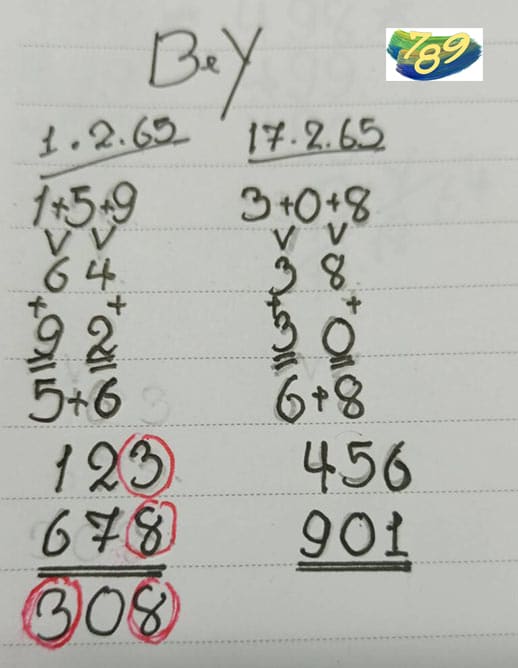 BeY
789
1.2.65
1+5+9
6 4
+ +
9 2
5+6
1 2 3
6 7 8
3 0 8
17.2.65
3+0+8
3 8
+ +
3 0
6+8
4 5 6
9 0 1